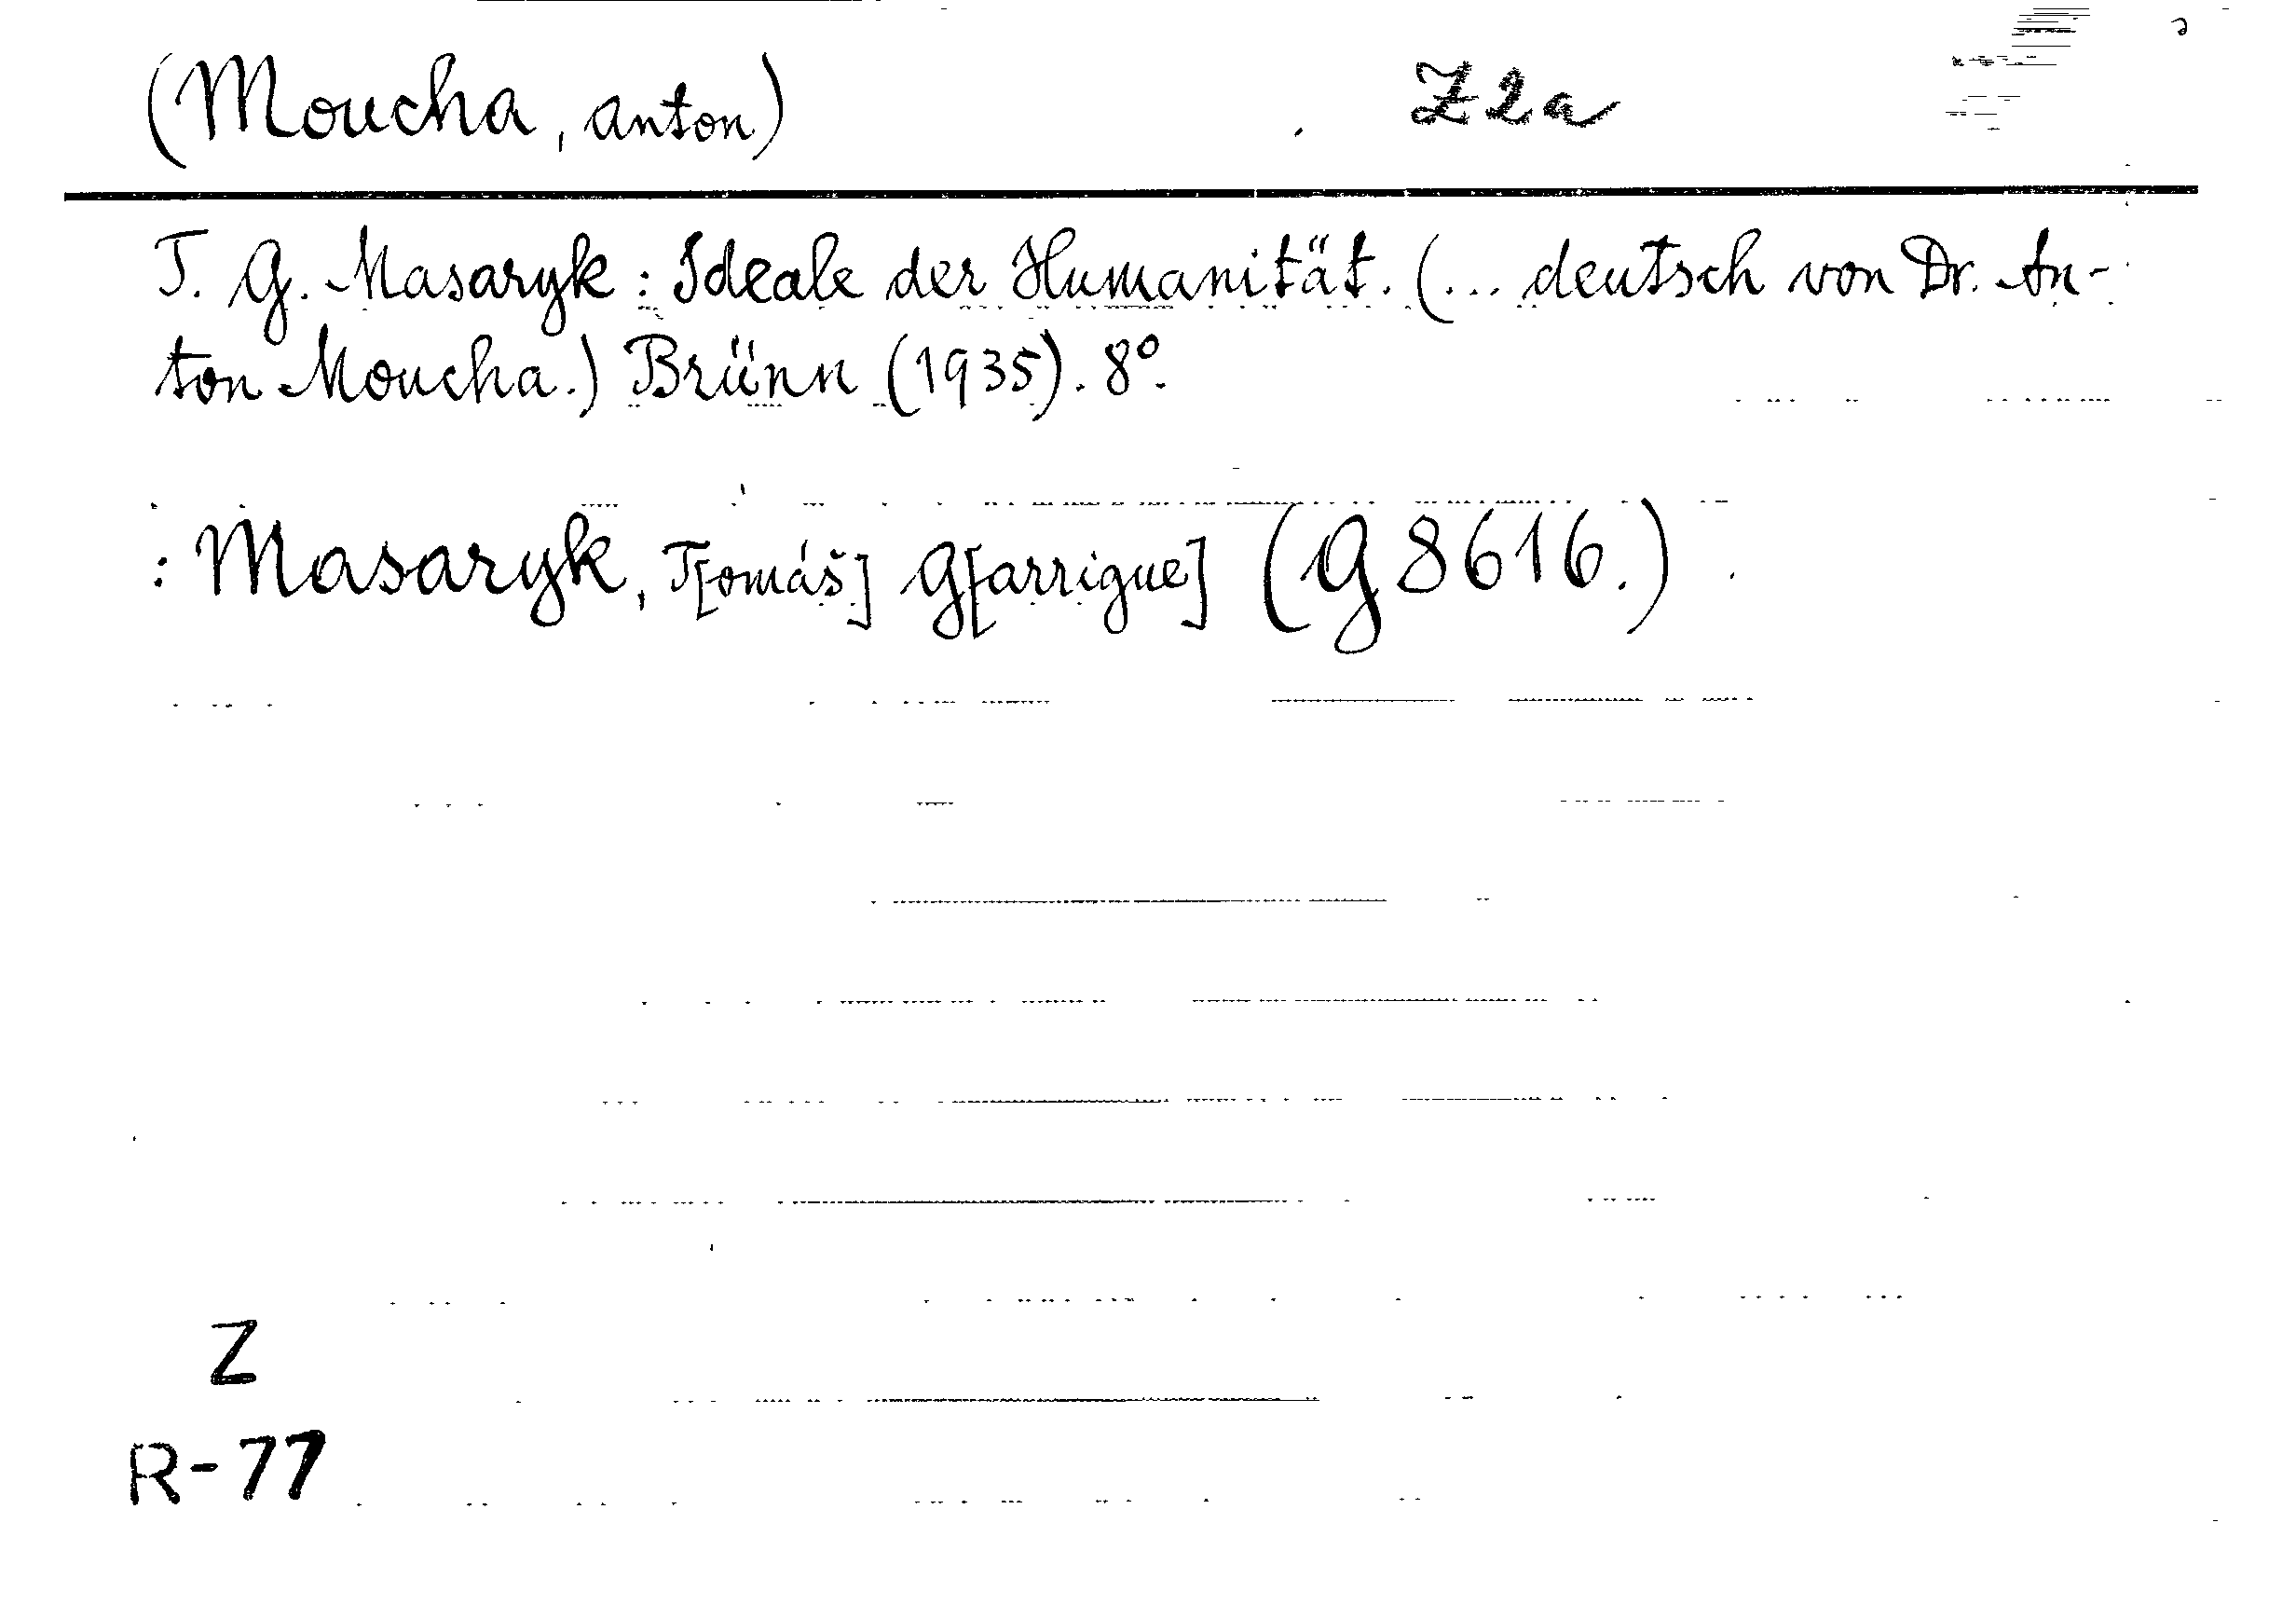 (Moucha, Anton) Z2a
T. G. Masaryk: Ideale der Humanität. (... deutsch von Dr. An-
ton Moucha.) Brünn (1935). 8°.
: Masaryk, T[omáš] G[arrigue] (G 8616.)
Z
R-77